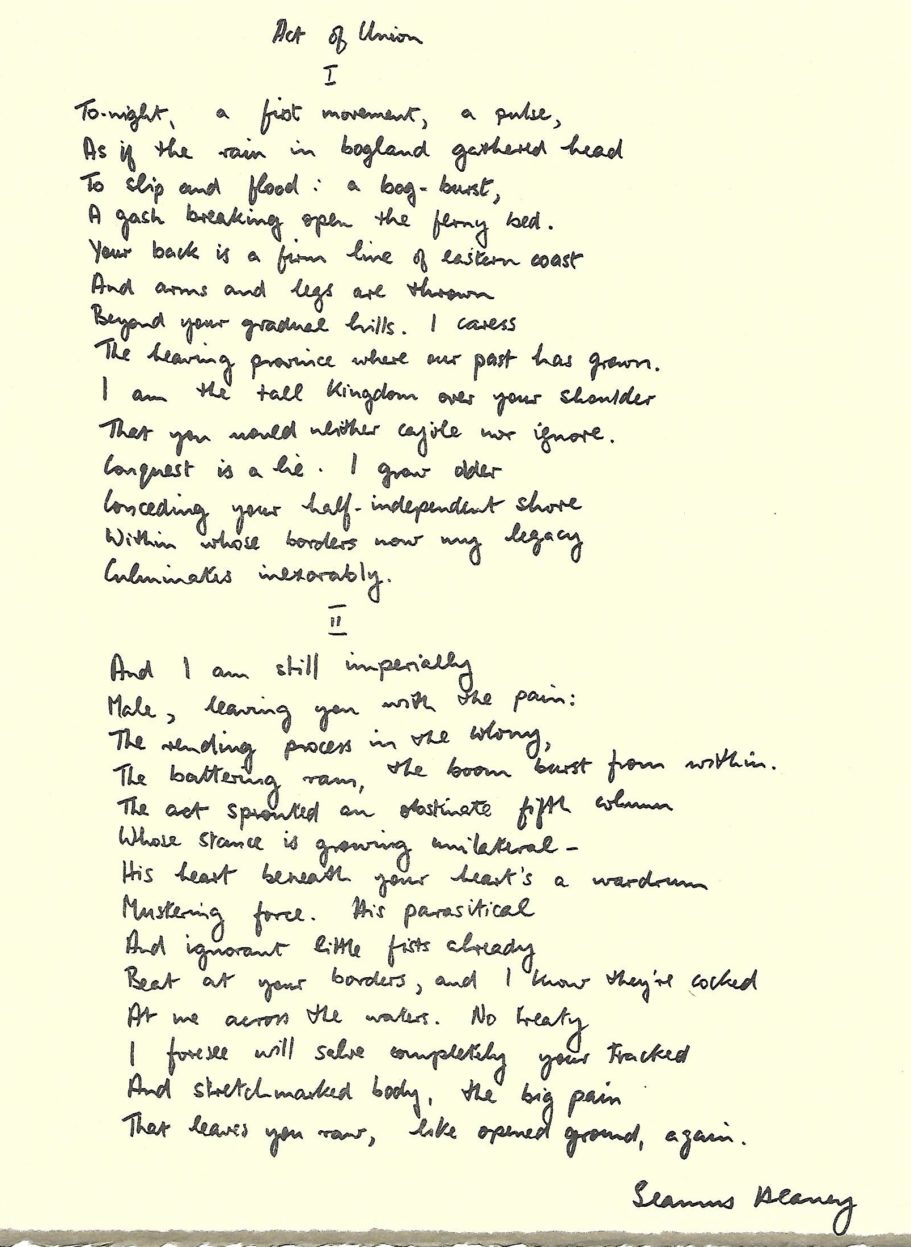 Act of Union
I
To-night, a first movement, a pulse,
As if the rain in bogland gathered head
To slip and flood: a bog-burst,
A gash breaking open the ferny bed.
Your back is a firm line of eastern coast
And arms and legs are thrown
Beyond your gradual hills. I caress
The heaving province where our past has grown.
I am the tall kingdom over your shoulder
That you would neither cajole nor ignore.
Conquest is a lie. I grow older
Conceding your half-independent shore
Within whose borders now my legacy
Culminates inexorably.
II
And I am still imperially
Male, leaving you with the pain:
The rending process in the colony,
The battering ram, the boom burst from within.
The act sprouted an obstinate fifth column
Whose stance is growing unilateral -
His heart beneath your heart's a wardrum
Mustering force. His parasitical
And ignorant little fists already
Beat at your borders, and I know they're cocked
At me across the waters. No treaty
I foresee will salve completely your tracked
And stretchmarked body, the big pain
That leaves you raw, like opened ground, again.
Seamus Heaney